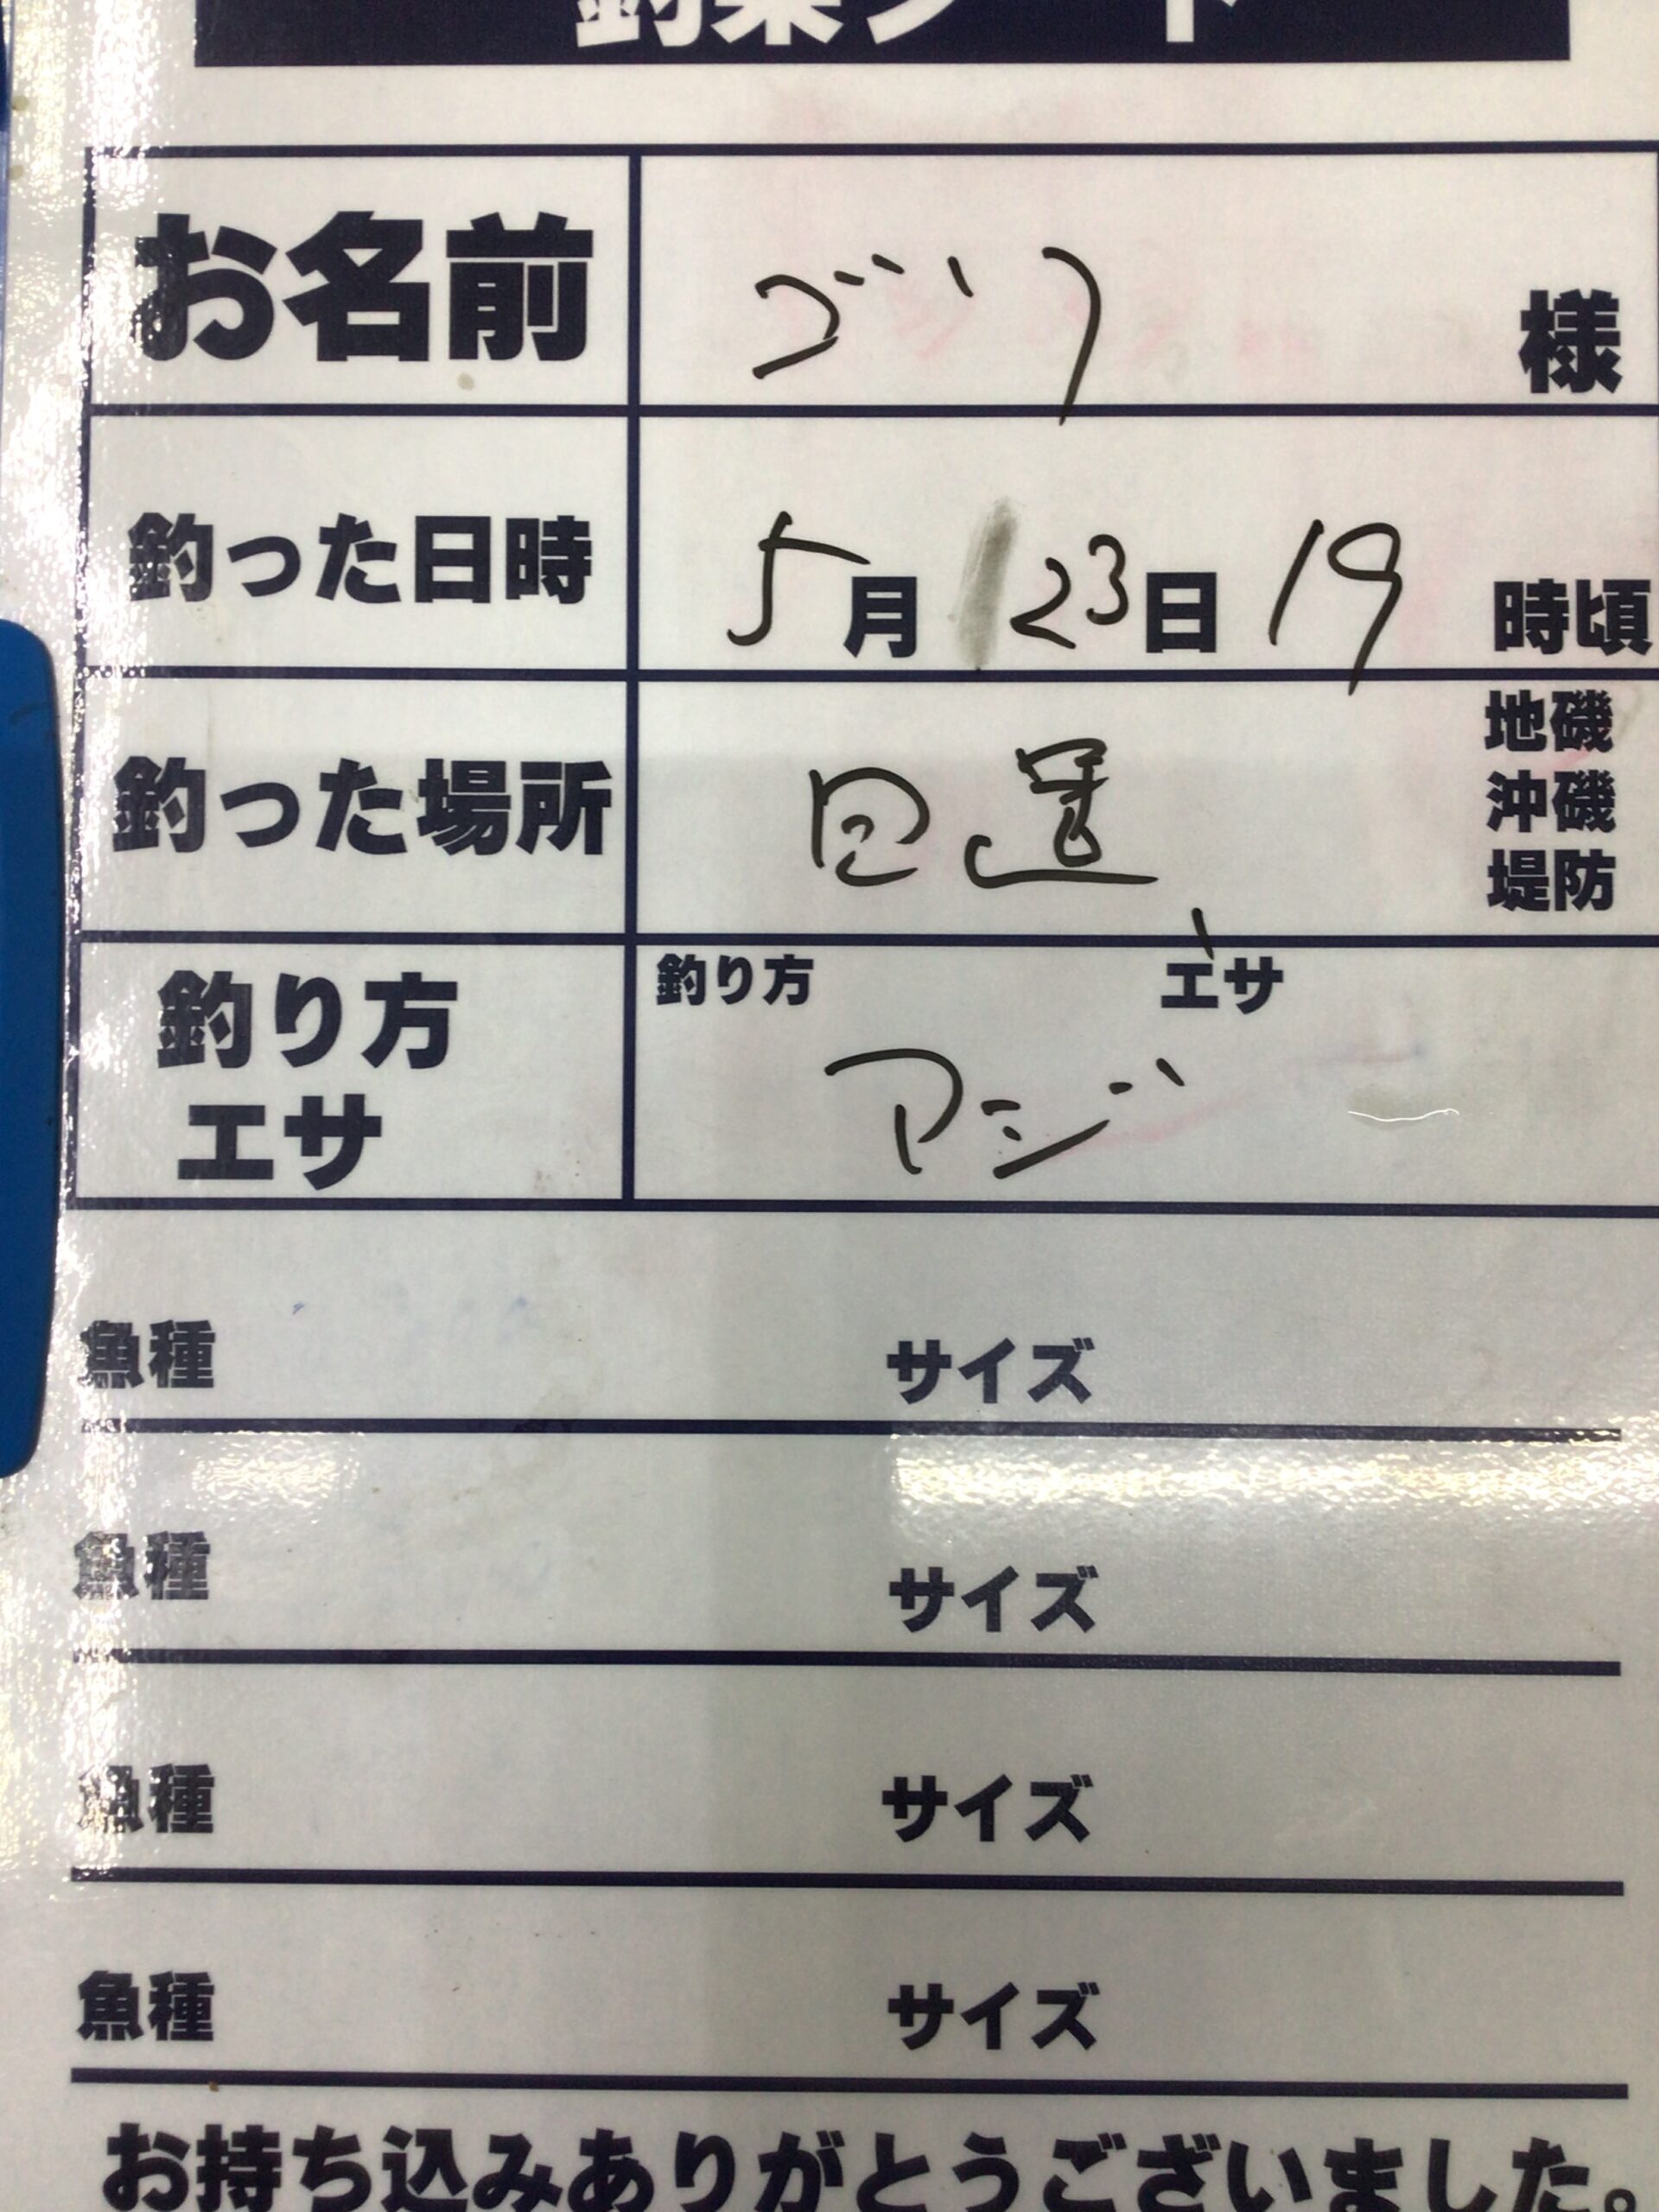 釣果シート
お名前 ゴソ 様
釣った日時 5月23日19時頃
釣った場所 日置 地磯
沖磯
堤防
釣り方 エサ
釣り方
エサ
アジ
魚種 サイズ
魚種 サイズ
魚種 サイズ
魚種 サイズ
お持ち込みありがとうございました。